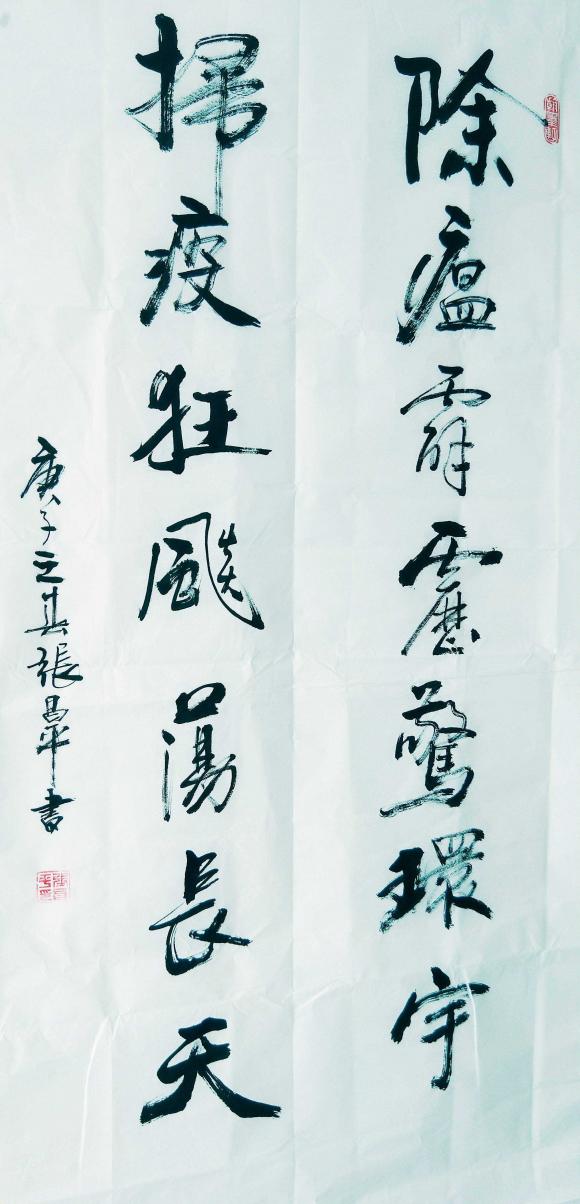 除瘟霹靂驚環宇
掃疫狂飈蕩長天
庚子之其張昌平書